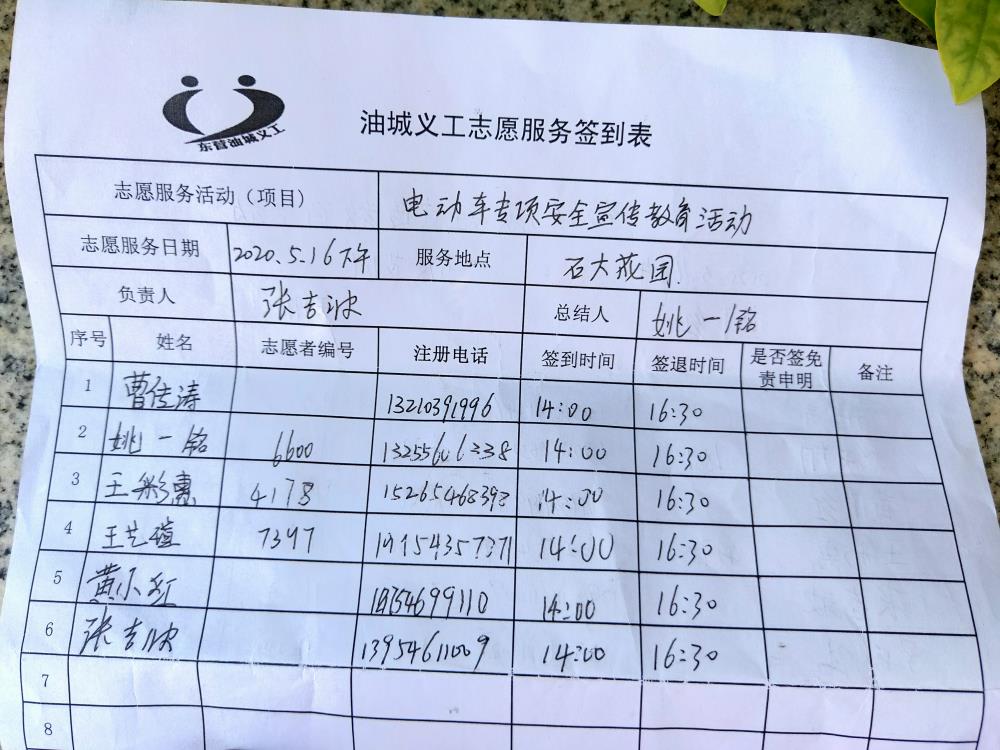 东营油城义工
油城义工志愿服务签到表
志愿服务活动（项目） 电动车专项安全宣传教育活动
志愿服务日期 2020.5.16下午 服务地点 石大花园
负责人 张吉波 总结人 姚一铭
序号 姓名 志愿者编号 注册电话 签到时间 签退时间 是否签免责申明 备注
1 曹佳涛 13210391996 14:00 16:30
2 姚一铭 6600 13255606338 14:00 16:30
3 王彩惠 4178 15265468398 14:00 16:30
4 王艺瑄 7397 14:00 16:30
5 黄小红 14:00 16:30
6 张吉波 13954611009 14:00 16:30
7
8